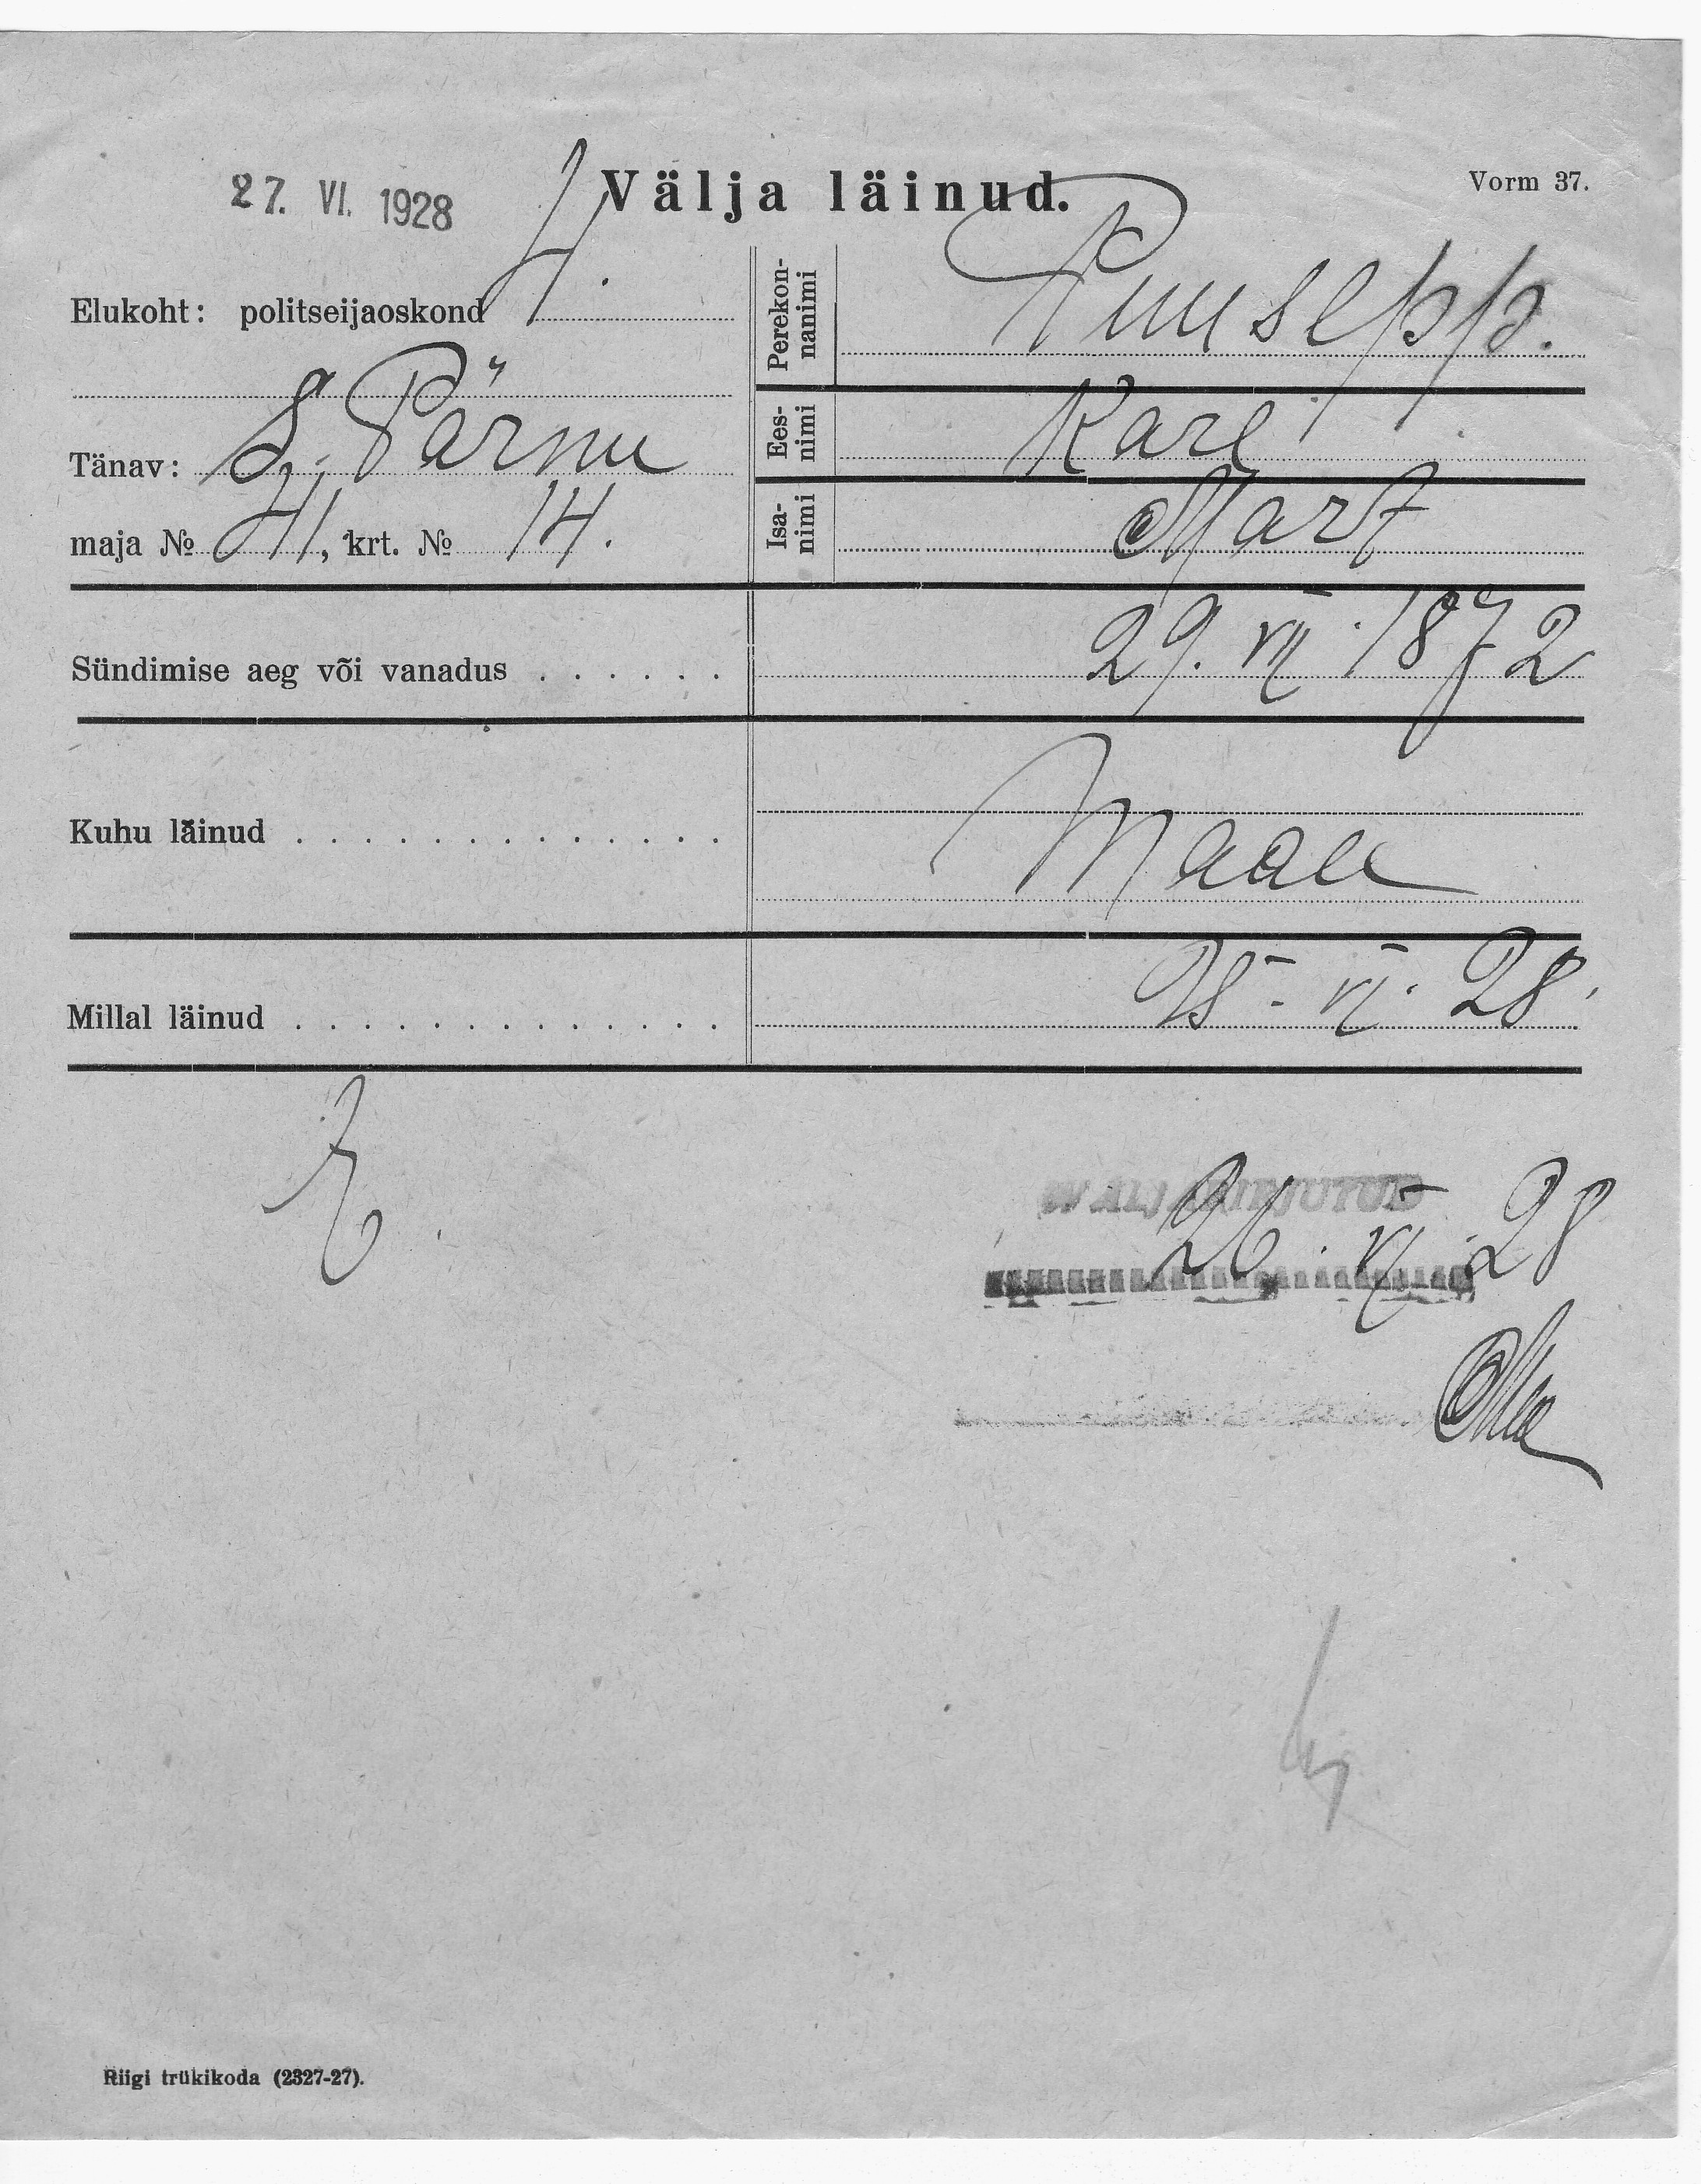 27. VI. 1928
Välja läinud.
Vorm 37.
Elukoht: politseijaoskond 4.
Tänav: S. Pärnu
maja № 41, krt. № 14.
Perekonnanimi Puusepp.
Eesnimi Karl
Isanimi Mart
Sündimise aeg või vanadus . . . . . . 29. VII. 1872
Kuhu läinud . . . . . . . . . . . . . Maale
Millal läinud . . . . . . . . . . . . . 25. VI. 28.
WÄLJAKIRJUTUD
26. VI. 28
Riigi trükikoda (2327-27).